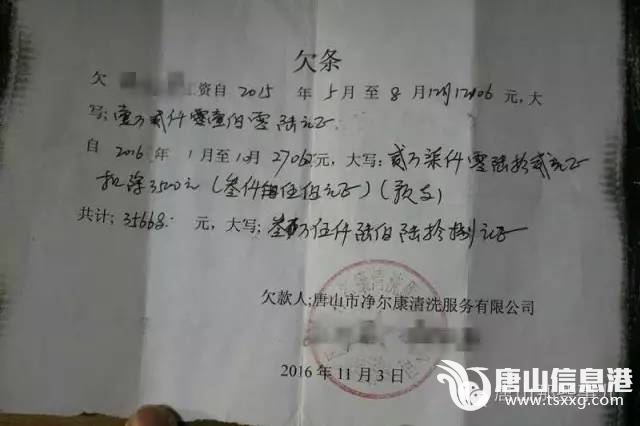 欠条
欠 工资自 2015 年 5月 至 8月12月12106 元,大
写:壹万贰仟零壹佰零陆元正
自 2016 年 1月至10月 27062元,大写:贰万柒仟零陆拾贰元正
扣除3500元(叁仟伍佰元正)(预支)
共计:35668 元,大写:叁万伍仟陆佰陆拾捌元正
欠款人:唐山市净尔康清洗服务有限公司
2016 年 11 月 3 日
唐山信息港
www.tsxxg.com